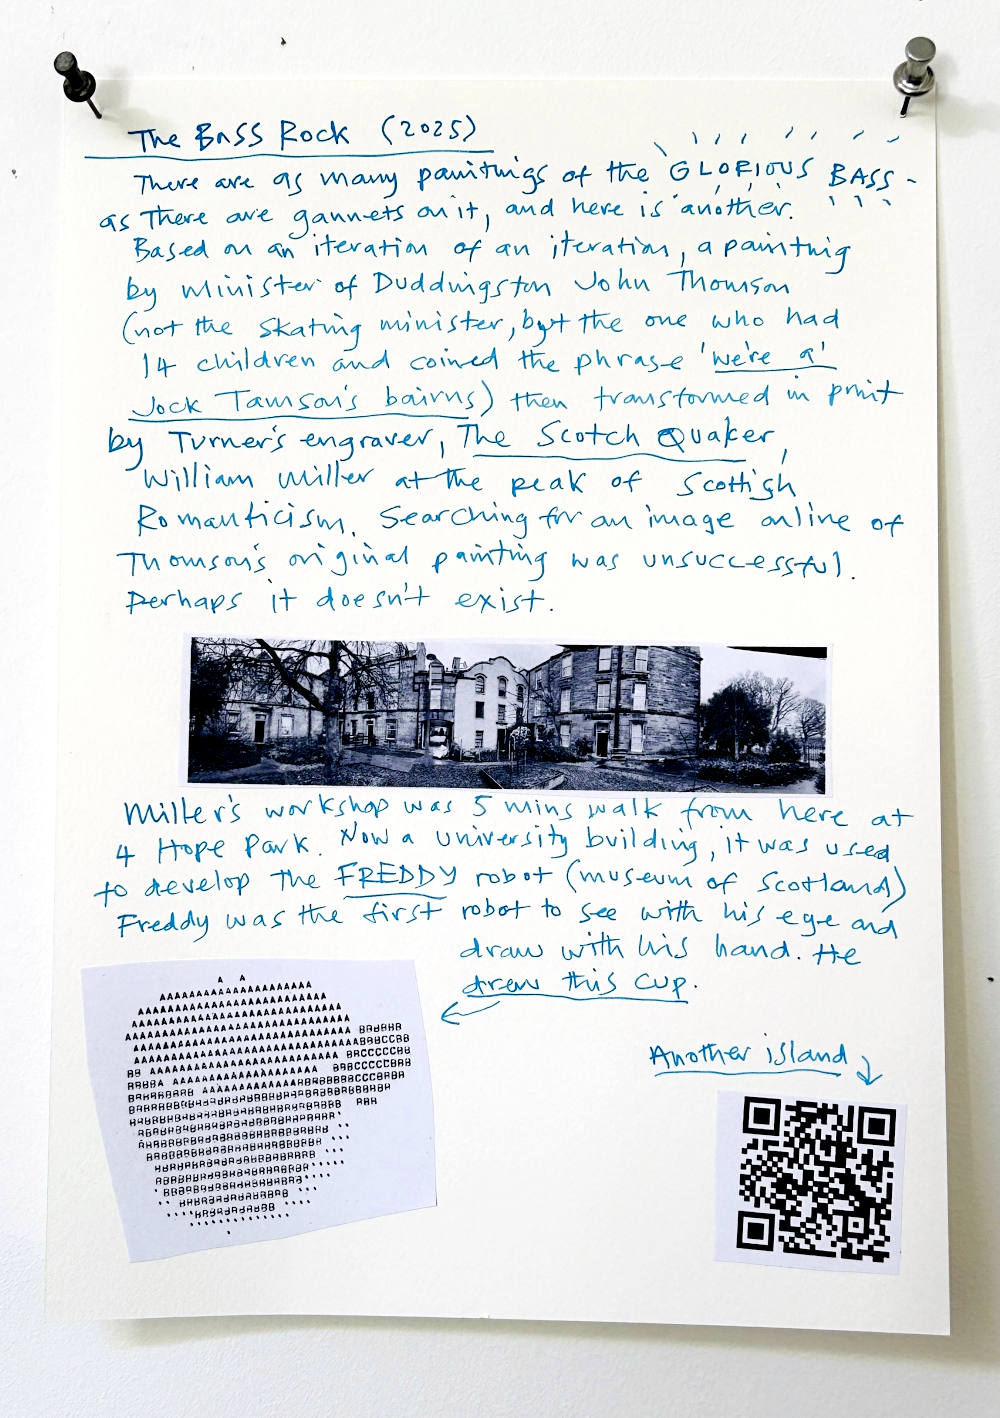 The BASS ROCK (2025)
There are as many paintings of the GLORIOUS BASS -
as There are gannets on it, and here is another.
Based on an iteration of an iteration, a painting
by minister of Duddingston John Thomson
(not the skating minister, but the one who had
14 children and coined the phrase 'we're a'
Jock Tamson's bairns) then transformed in print
by Turner's engraver, The Scotch Quaker,
William Miller at the peak of Scottish
Romanticism. Searching for an image online of
Thomson's original painting was unsuccessful.
Perhaps it doesn't exist.
Miller's workshop was 5 mins walk from here at
4 Hope Park. Now a university building, it was used
to develop the FREDDY robot (museum of Scotland)
Freddy was the first robot to see with his eye and
draw with his hand. He
drew this cup.
Another island